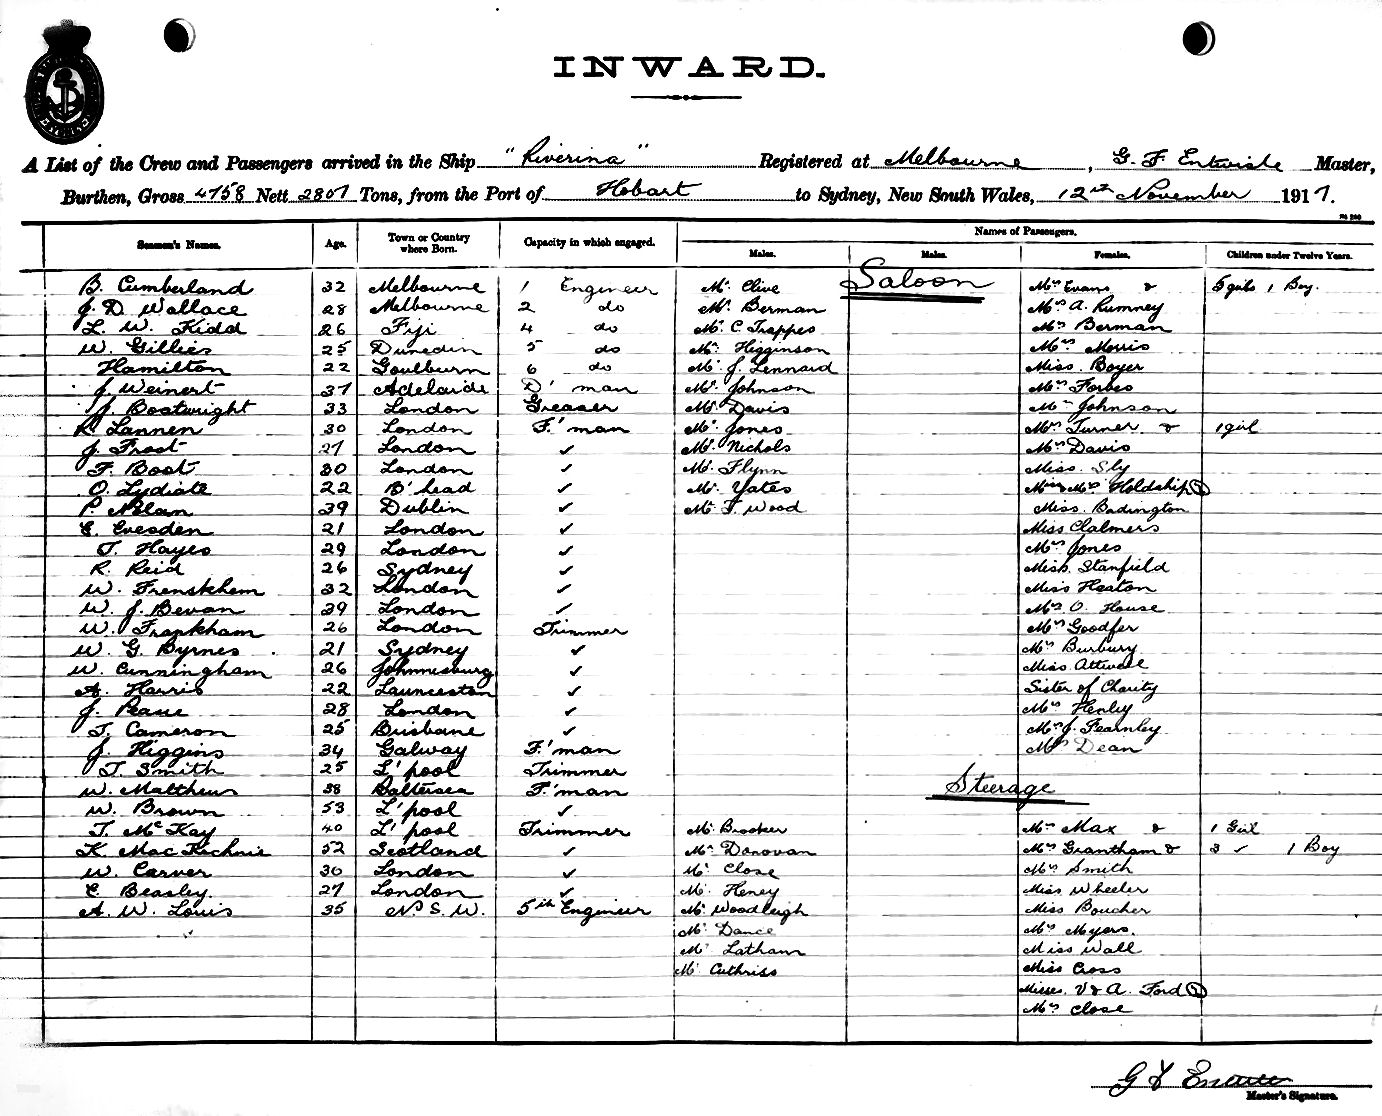 INWARD.
A List of the Crew and Passengers arrived in the Ship "Riverina" Registered at Melbourne, G. F. Entwisle Master,
Burthen, Gross 4758 Nett 2807 Tons, from the Port of Hobart to Sydney, New South Wales, 12th November 1917.
Names of Passengers.
Seamen's Names. Age. Town or Country where Born. Capacity in which engaged. Males. Males. Females. Children under Twelve Years.
Saloon
B. Cumberland 32 Melbourne 1 Engineer Mr Clive Mrs Evans & 5 girls 1 Boy.
J. D. Wallace 28 Melbourne 2 do Mr. Berman Mrs A. Rumney
L. W. Kidd 26 Fiji 4 do Mr. C Trappes Mrs Berman
W. Gillies 25 Dunedin 5 do Mr. Higginson Mrs Morris
Hamilton 22 Goulburn 6 do Mr J. Lennard Miss. Boyer
J. Weinert 37 Adelaide D' man Mr. Johnson Mrs Forbes
J. Boatwright 33 London Greaser Mr Davis Mrs Johnson
R. Lannen 30 London F.' man Mr. Jones Mrs Turner & 1 girl
J. Frost 27 London ✓ Mr. Nichols Mrs Davis
F. Boot 30 London ✓ Mr. Flynn Miss. Sly
O. Lydiate 22 B' head ✓ Mr. Yates Miss & Mrs Holdship 2
P. Nolan 39 Dublin ✓ Mr F. Wood Miss. Badington
E. Evesden 21 London ✓ Miss Clalmers
T. Hayes 29 London ✓ Mrs Jones
R. Reid 26 Sydney ✓ Miss. Stanfield
W. Frenskhem 32 London ✓ Miss Heaton
W. J. Bevan 39 London ✓ Mrs O. House
W. Frankham 26 London Trimmer Mrs Goodfer
W. G. Byrnes 21 Sydney ✓ Mrs Burbury
W. Cunningham 26 Johnnesburg ✓ Miss. Attwell
A. Harris 22 Launceston ✓ Sister of Charity
J. Pease 28 London ✓ Mrs Henley
T. Cameron 25 Brisbane ✓ Mrs J. Fearnley
J. Higgins 34 Galway F.' man Mrs Dean
T. Smith 25 L' pool Trimmer
Steerage
W. Matthews 38 Battersea F.' man
W. Brown 53 L' pool ✓
T. McKay 40 L' pool Trimmer Mr Brooker Mrs Max & 1 Girl
K. MacKechnie 52 Scotland ✓ Mr. Donovan Mrs Grantham & 3 ✓ 1 Boy
W. Carver 30 London ✓ Mr Close Mrs Smith
E Beasley. 27 London ✓ Mr. Heney Miss Wheeler
A. W. Louis 35 N. S. W. 5th Engineer Mr Woodleigh Miss Boucher
Mr Dance Mrs Myers.
Mr Latham Miss Wall
Mr Cuthriss Miss Cross
Misses. V & A. Ford 2
Mrs Close
G F Entwisle
Master's Signature.